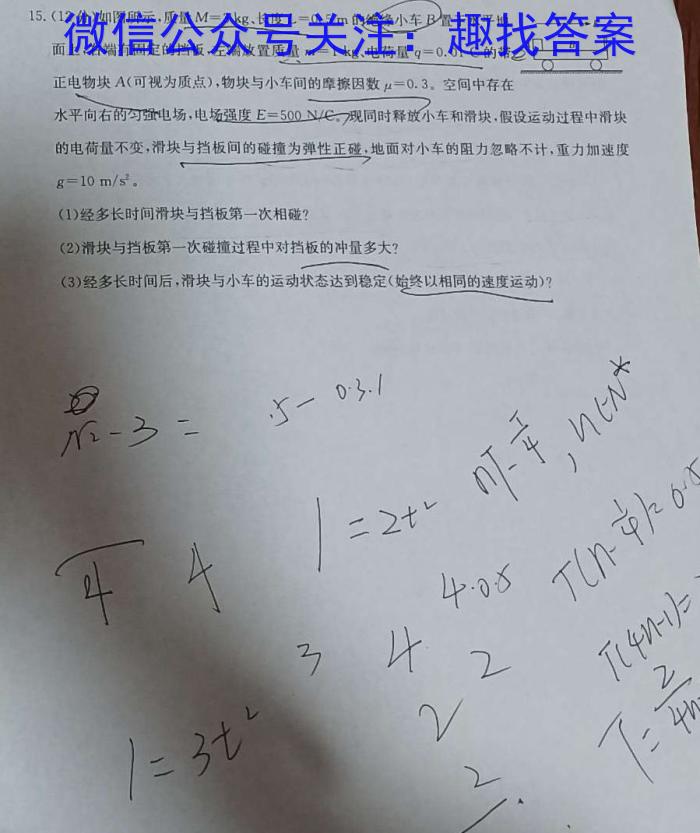 微信公众号关注：趣找答案
15.(12分)如图所示,质量M= kg、长度L= m的绝缘小车B置
面上,右端有固定的挡板,左端放置质量m=1 kg、电荷量q=0.01 C的带
正电物块A(可视为质点),物块与小车间的摩擦因数μ=0.3。空间中存在
水平向右的匀强电场,电场强度E=500 N/C。现同时释放小车和滑块,假设运动过程中滑块
的电荷量不变,滑块与挡板间的碰撞为弹性正碰,地面对小车的阻力忽略不计,重力加速度
g=10 m/s²。
(1)经多长时间滑块与挡板第一次相碰?
(2)滑块与挡板第一次碰撞过程中对挡板的冲量多大?
(3)经多长时间后,滑块与小车的运动状态达到稳定(始终以相同的速度运动)?
-3 =
0.3.1
1=2t²
nT-T/4, n∈N*
4 4
4.05
T(n-1/4)=0.
3 4 2
T(4n-1)=
1=3t²
2
2